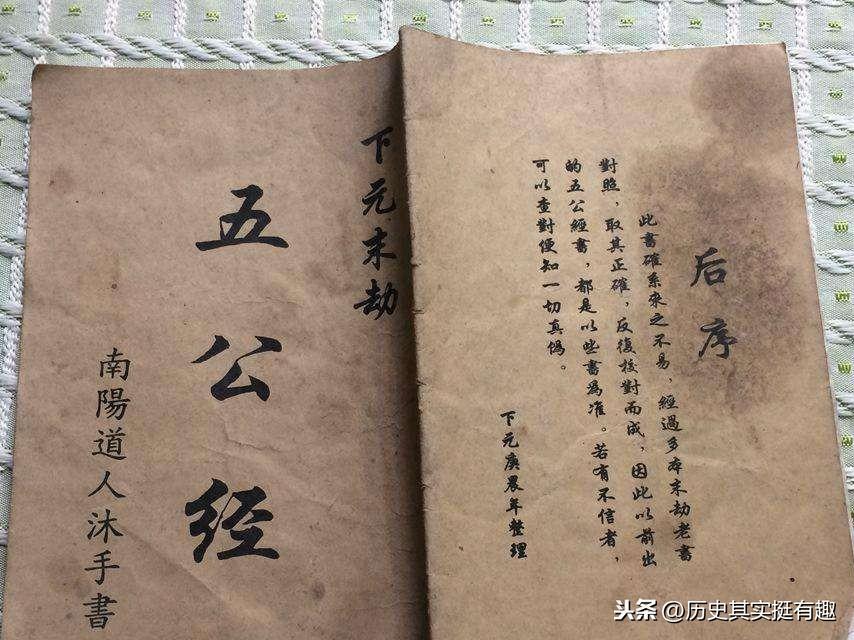 下元末劫
五公经
南陽道人沐手書
后序
此書確系來之不易，經過多本末劫老書
對照，取其正確，反復校對而成，因此以前出
的五公經書，都是以些書為准。若有不信者，
可以查對便知一切真僞。
下元庚晨年整理
头条 @历史其实挺有趣